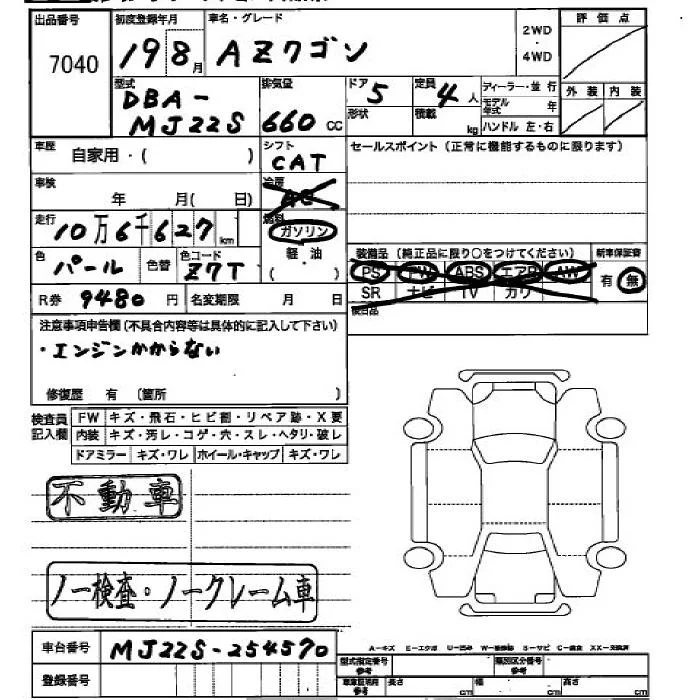 出品番号 初度登録年月 車名・グレード 評価点
7040 19 8月 AZワゴン 2WD・4WD
型式 排気量 ドア 定員 ディーラー・並行 外装 内装
DBA-MJ22S 660cc 5 4人
形状 積載 kg モデル年式 年
ハンドル 左・右
車歴 自家用・( ) シフト CAT セールスポイント(正常に機能するものに限ります)
車検 年 月( 日) 冷房 AC
走行 10万6千627km 燃料 ガソリン 軽・油 ( )
装備品(純正品に限り○をつけてください) 新車保証書
色 パール 色替 色コード Z7T
PS PW ABS エアB AW 有 無
SR ナビ TV カワ
R券 9480円 名変期限 月 日 後日品
注意事項申告欄(不具合内容等は具体的に記入して下さい)
・エンジンかからない
修復歴 有 (箇所 )
検査員記入欄 FW キズ・飛石・ヒビ割・リペア跡・X要
内装 キズ・汚レ・コゲ・穴・スレ・ヘタリ・破レ
ドアミラー キズ・ワレ ホイール・キャップ キズ・ワレ
不動車
ノー検査・ノークレーム車
A-キズ E-エクボ U-凹み S-サビ C-腐食 XX-交換済
車台番号 MJ22S-254570
型式指定番号 参考 類別区分番号 参考
登録番号
車車証明用 参考 長さ cm 幅 cm 高さ cm